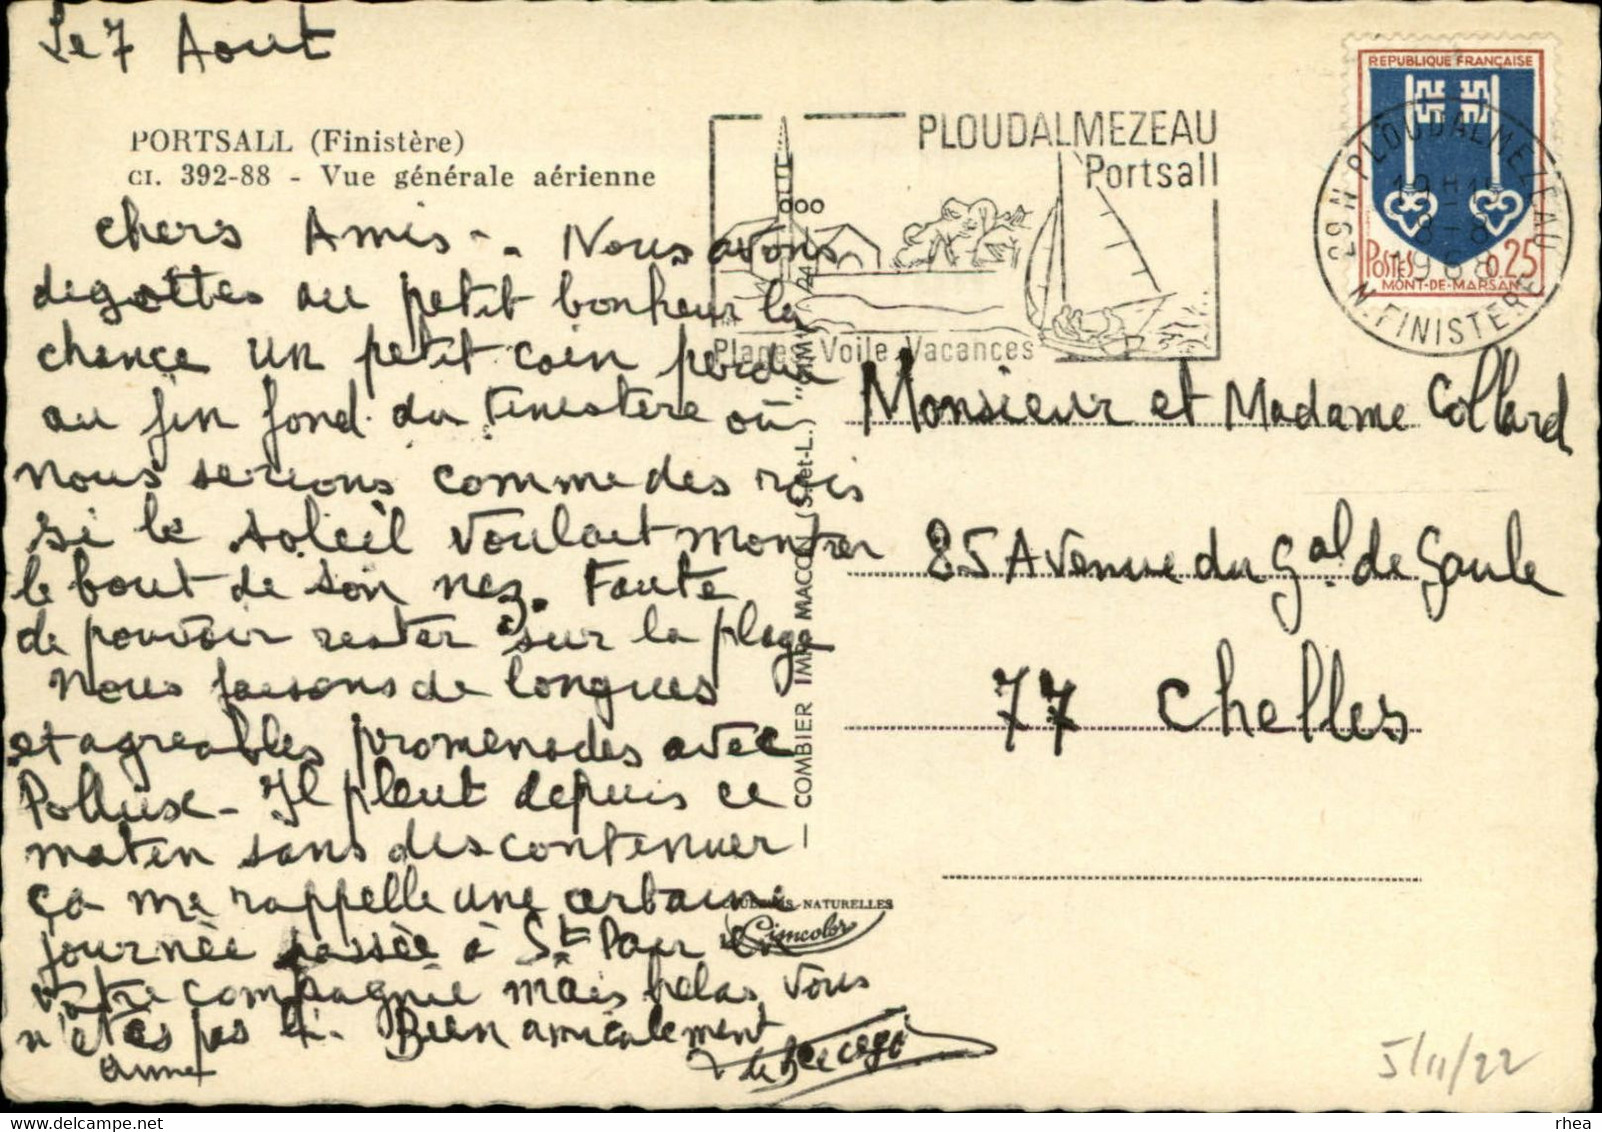 Le 7 Aout
PORTSALL (Finistère)
CI. 392-88 - Vue générale aérienne
PLOUDALMEZEAU
Portsall
Plages Voile Vacances
REPUBLIQUE FRANÇAISE
POSTES 0.25
MONT-DE-MARSAN
PLOUDALMEZEAU
19H15
8-8
1968
29 N N. FINISTERE
Chers Amis -. Nous avons
degottes au petit bonheur la
chance un petit coin perdu
au fin fond du Finistère où
nous serions comme des rois
si le soleil voulait montrer
le bout de son nez. Faute
de pouvoir rester sur la plage
nous faisons de longues
et agreables promenades avec
Pollux - Il pleut depuis ce
matin sans discontinuer
ça me rappelle une certaine
journée passée à St Pair en
votre compagnie mais helas vous
n'etes pas là. Bien amicalement
Anne
Monsieur et Madame Collard
85 Avenue du Gal de Gaule
77 Chelles
COMBIER IMP. MACON (S.-et-L.) "CIM"
COULEURS NATURELLES
Cimcolor
5/11/22
rhea